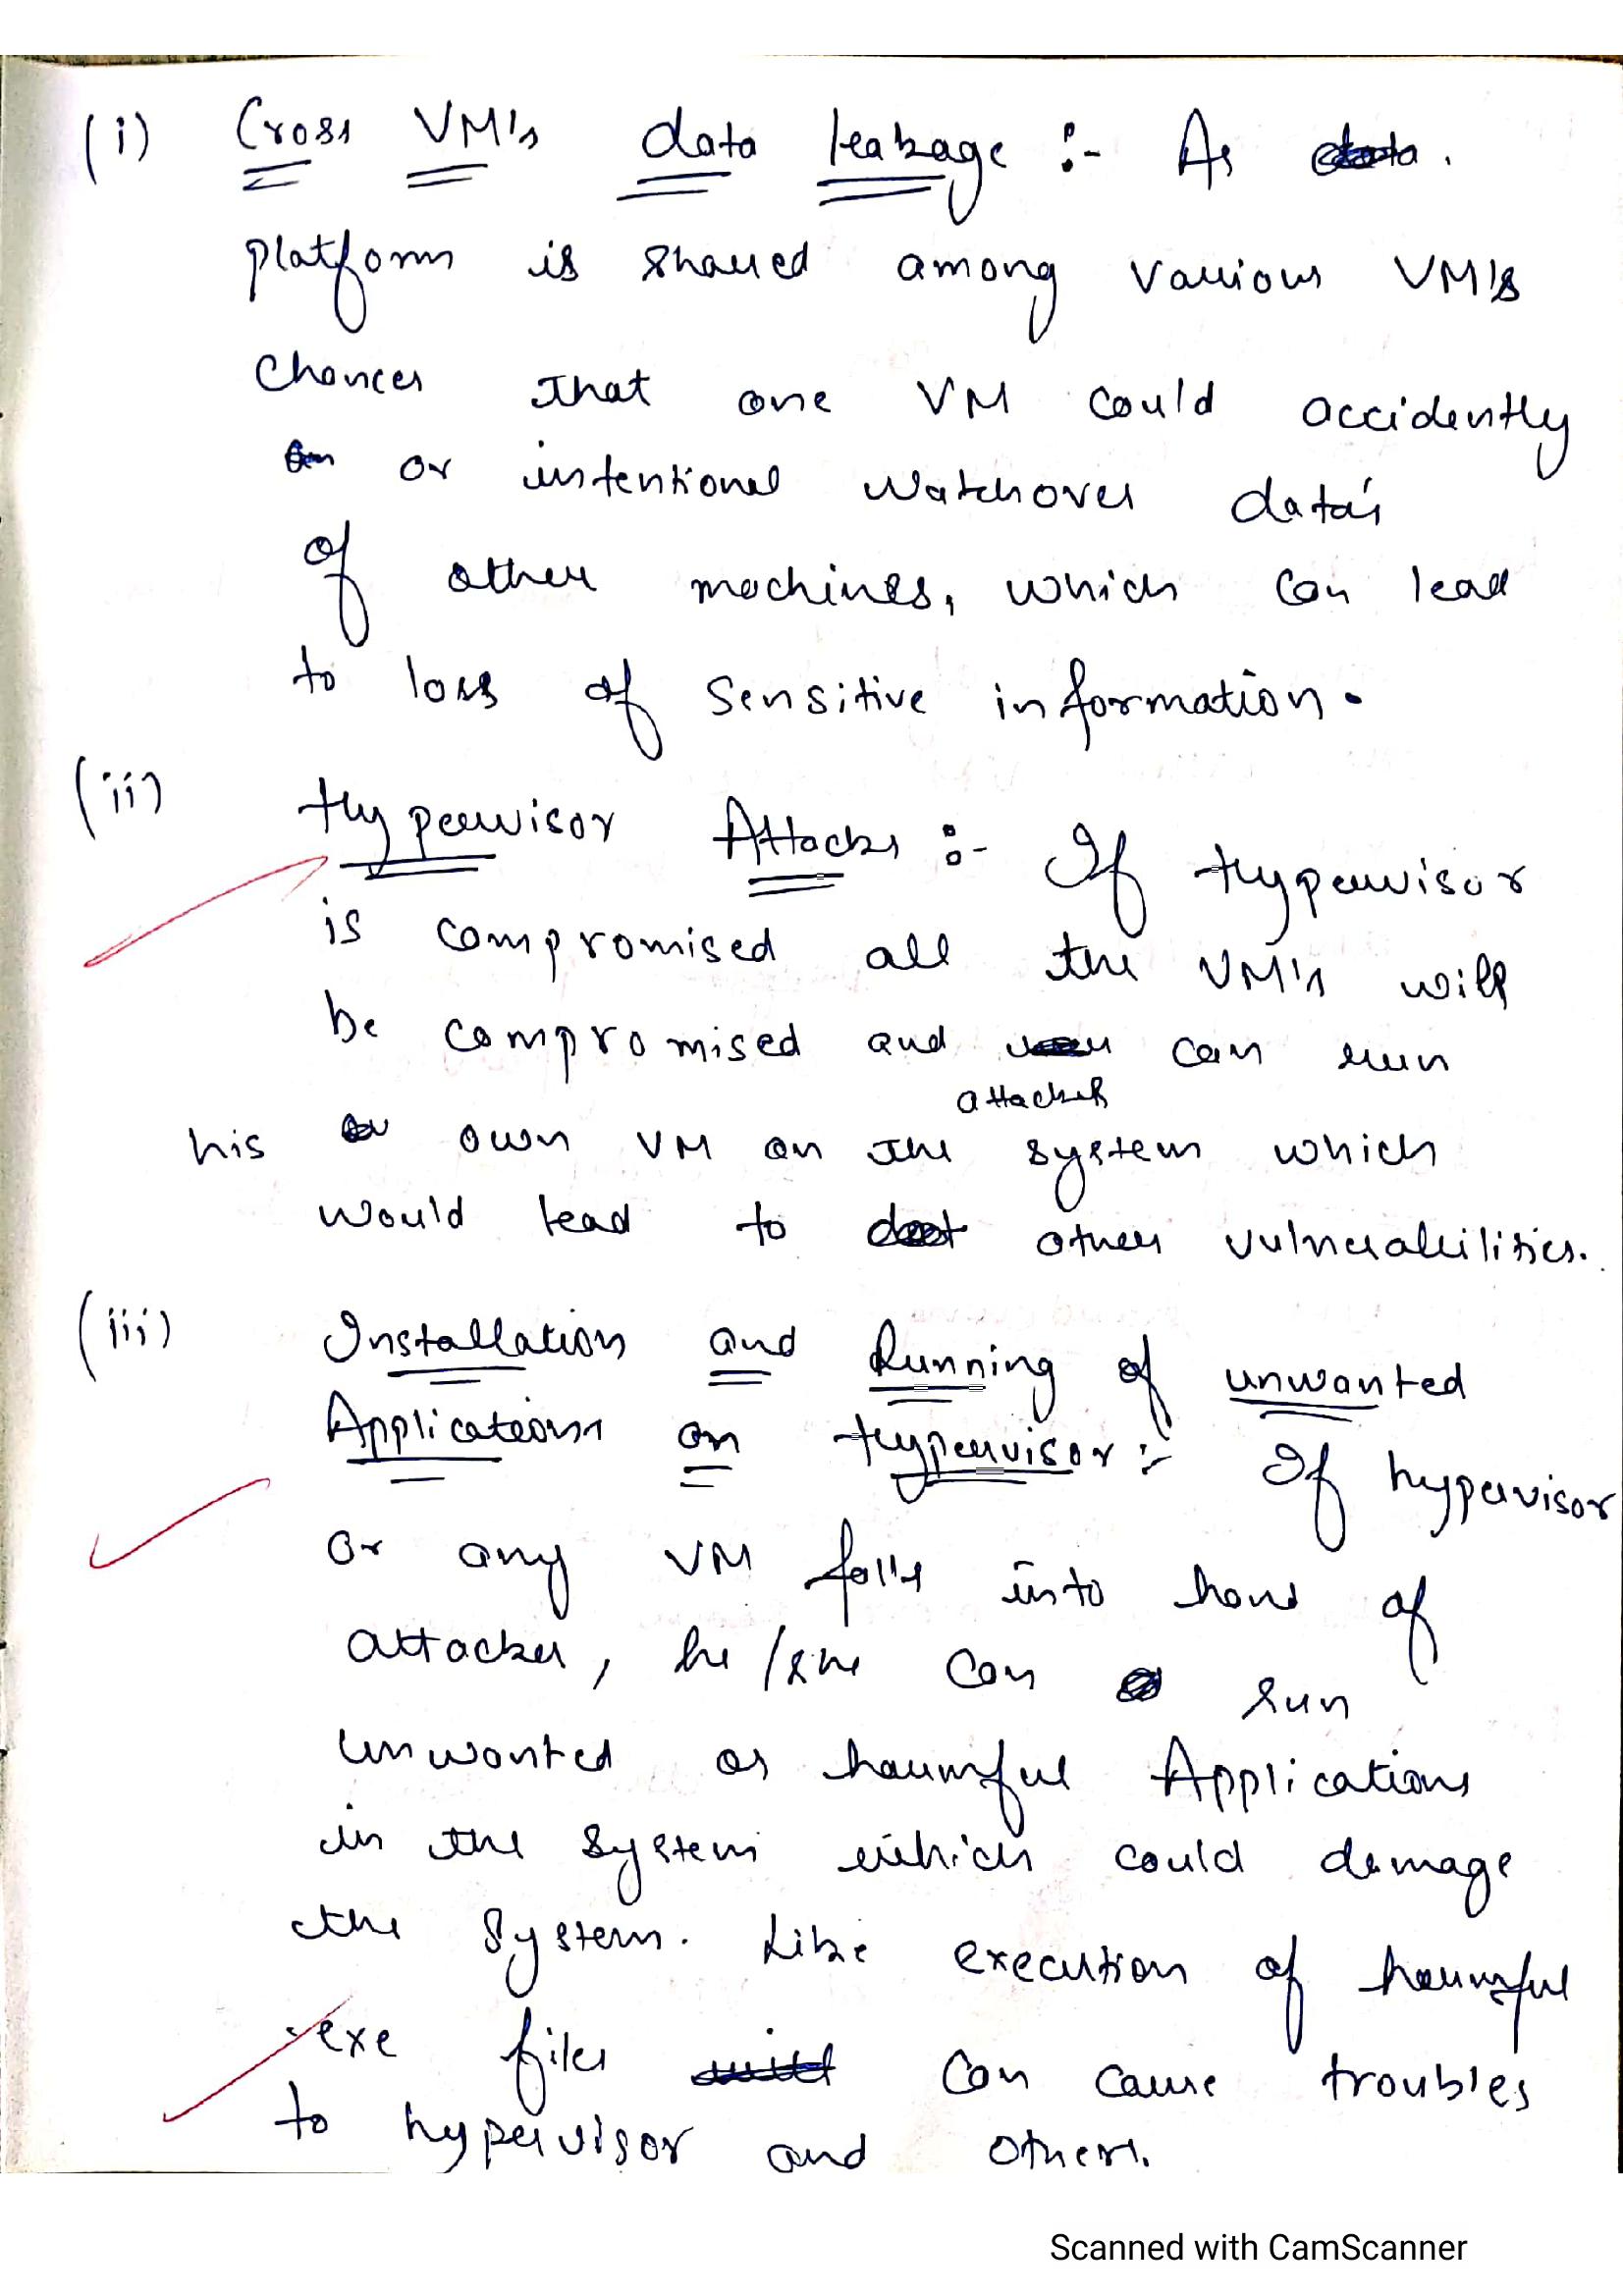 (i) Cross VM's data leakage :- As
platform is shared among various VM's
chances that one VM could accidently
or intentional watchover data's
of other machines, which can lead
to loss of sensitive information.
(ii) Hypervisor Attacks :- If Hypervisor
is compromised all the VM's will
be compromised and can run
attacker
his own VM on the system which
would lead to other vulnerabilities.
(iii) Installation and Running of unwanted
Applications on Hypervisor :- If hypervisor
or any VM falls into hand of
attacker, he/she can run
unwanted or harmful Applications
in the system which could damage
the system. Like execution of harmful
.exe files can cause troubles
to hypervisor and others.
Scanned with CamScanner